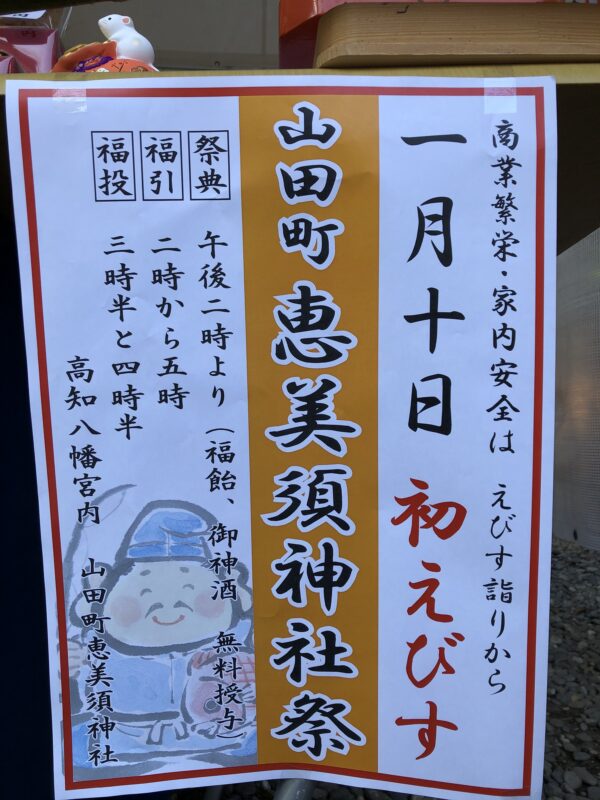 商業繁栄・家内安全は えびす詣りから
一月十日 初えびす
山田町 恵美須神社祭
祭典 午後二時より(福飴、御神酒 無料授与)
福引 二時から五時
福投 三時半と四時半
高知八幡宮内 山田町恵美須神社